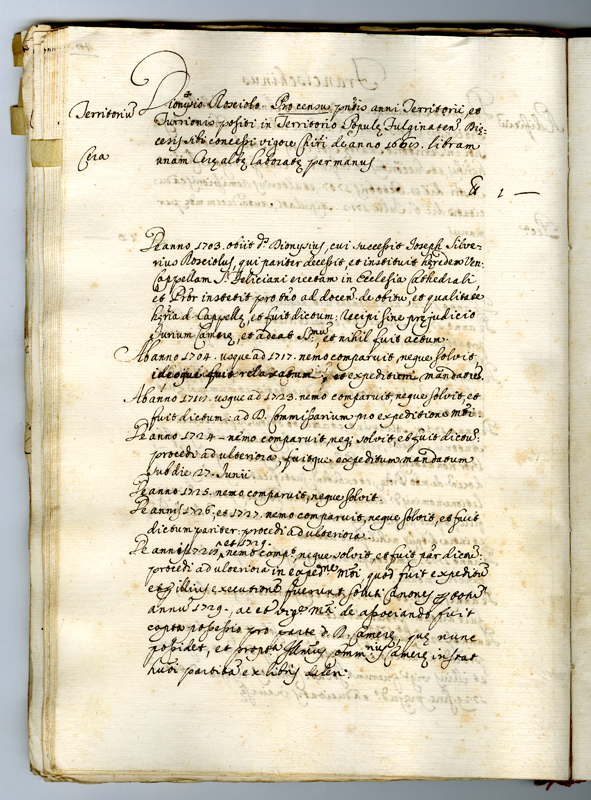 Territoriũ
Cera
Dionysio Rosciolo. Pro censu pñtis anni Territorii et
Turrionis positi in Territorio Populę Fulginateñ. Dię-
cesis sibi concessi vigore Chiri de anno 1669. libram
unam Cerę albę laboratę per manus
℔ 1 —
De anno 1703. obiit Ds Dionysius, cui successit Joseph Silve-
rius Rosciolus, qui pariter decessit, et instituit hęredem Ven:
Cappellam S. Feliciani erectam in Ecclesia Cathedrali
et Pror institit pro tño ad docenm de obitu, et qualitate
hęria d. Cappellę, et fuit dictum: Recipi sine prejudicio
Jurium Camerę, et adeat SSmum, et nihil fuit actum.
Ab anno 1704. usque ad 1717. nemo comparuit, neque solvit,
ideoque fuit relaxatum, et expeditum mandatum.
Ab anno 1717. usque ad 1723. nemo comparuit, neque solvit, et
fuit dictum: ad D. Commissarium pro expeditione Mti.
De anno 1724 - nemo comparuit, neq; solvit, et fuit dictũ:
procedi ad ulteriora, fuitque expeditum mandatum
sub die 27. Junii.
De anno 1725. nemo comparuit, neque solvit.
De annis 1726, et 1727. nemo comparuit, neque solvit, et fuit
dictum pariter: procedi ad ulteriora.
et 1729.
De annis 1728, nemo compt neque solvit et fuit par dictũ:
procedi ad ulteriora in expedne Mti quod fuit expeditũ
et illius executione fuerunt soluti Canones totũ
annũ 1729-, ac et vige Mti de associando fuit
capta possessio pro parte R. Camerę, quę nunc
possidet, et propta Illmus Commrius Camerę instat
huõi partitã ex libris deleri.